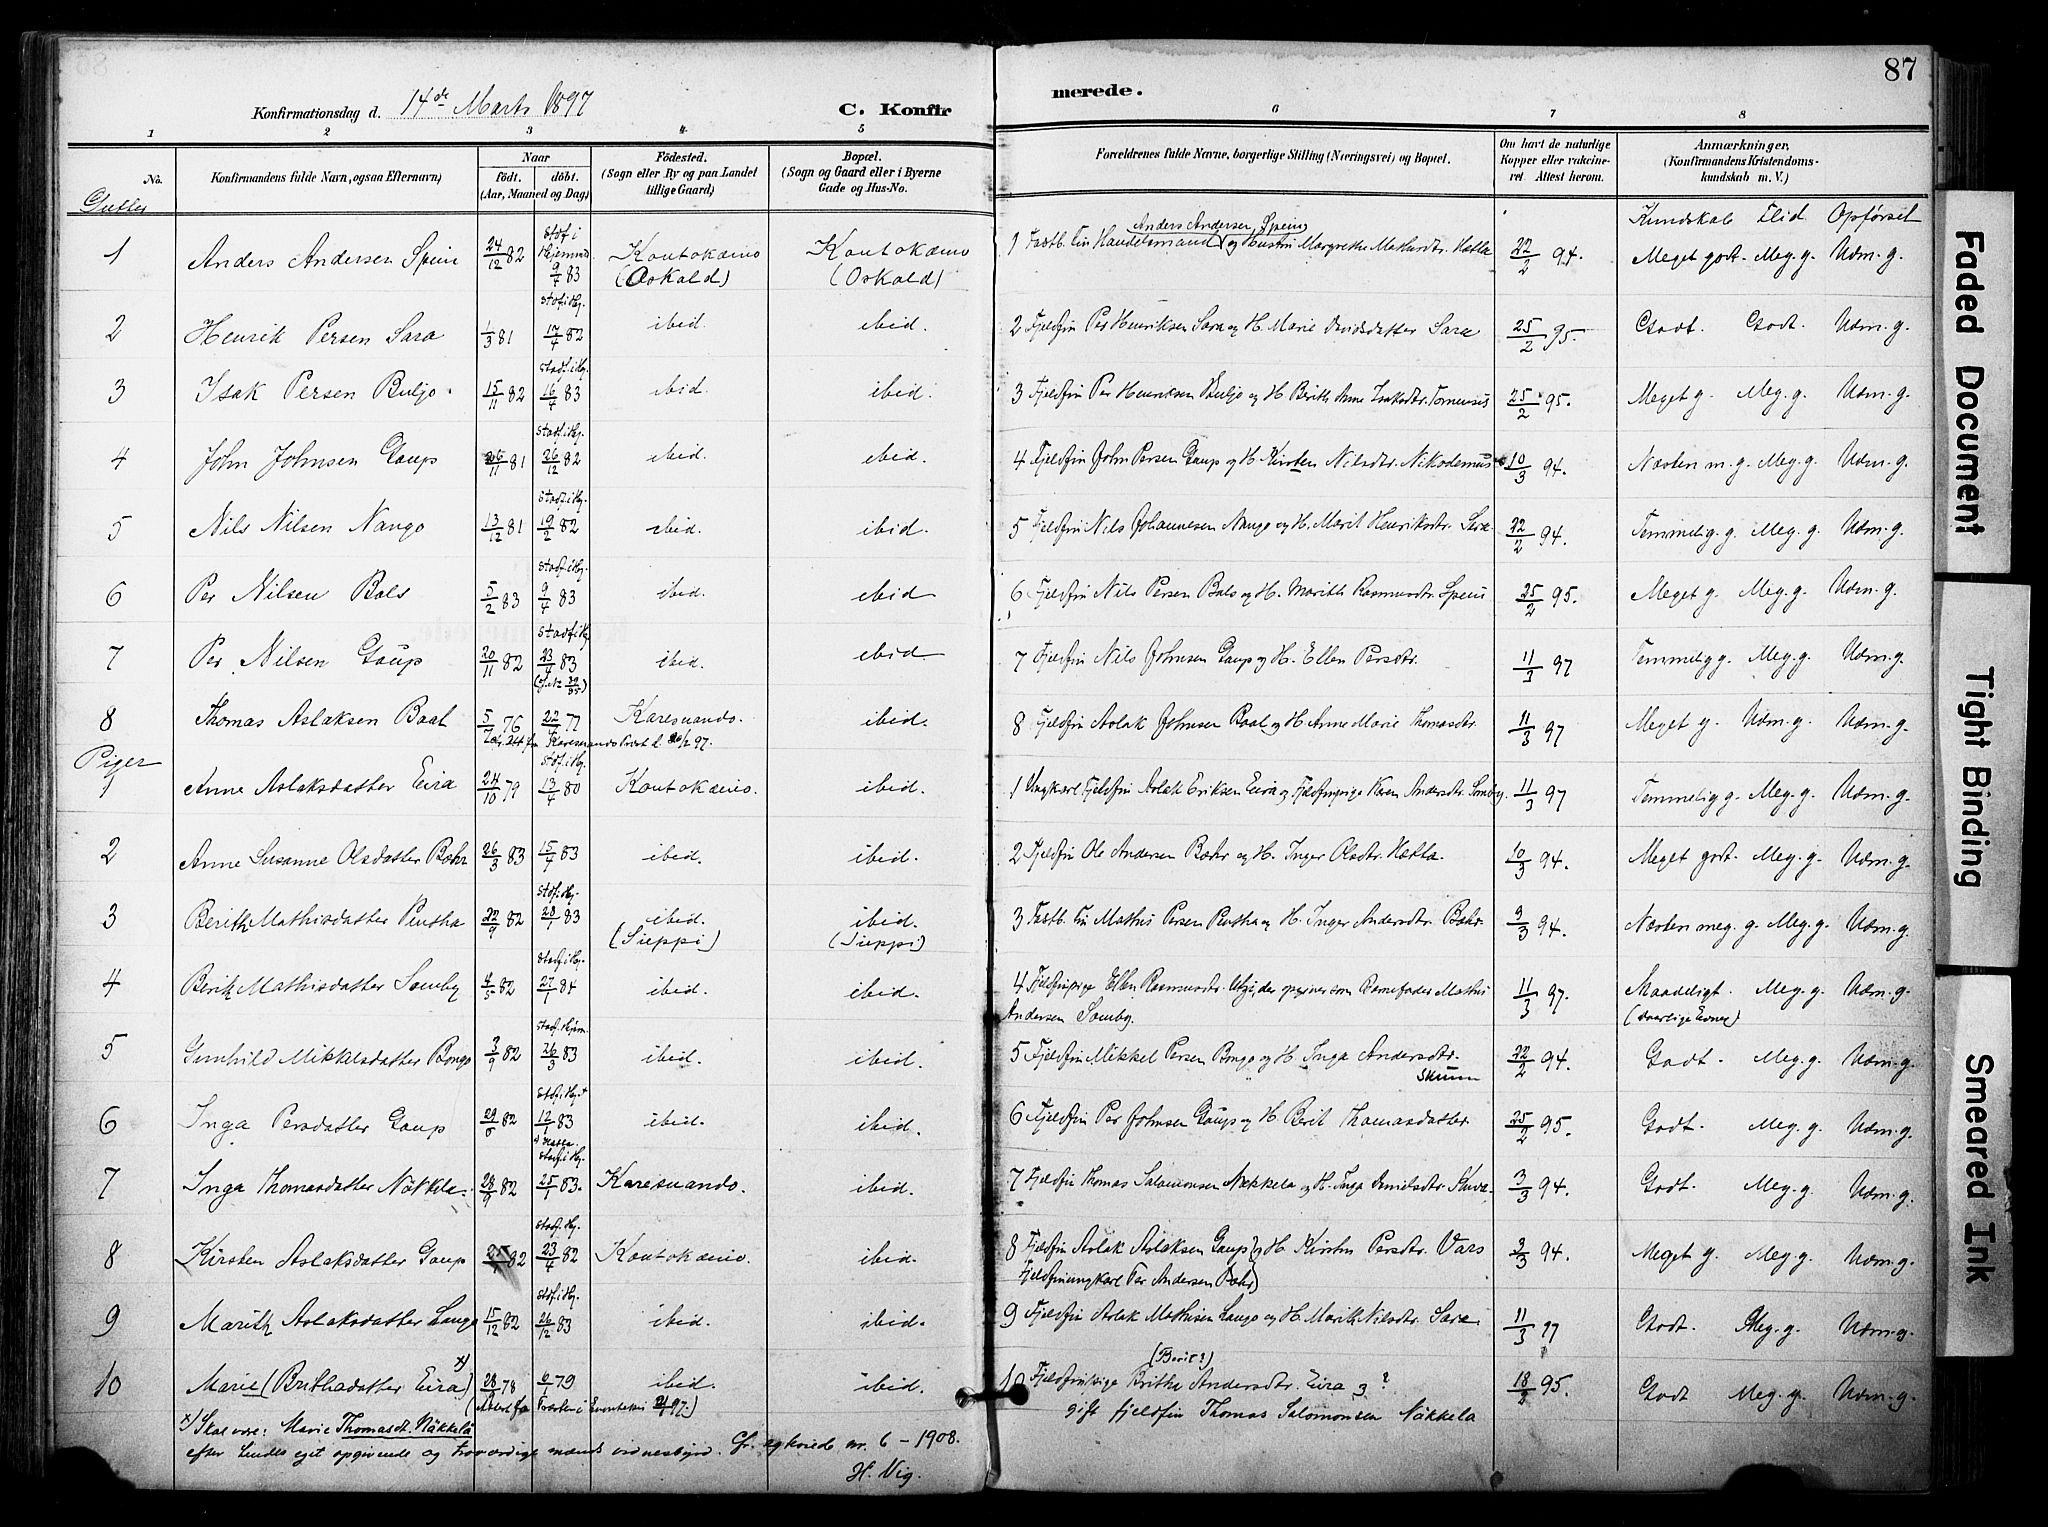 87
Konfirmationsdag d. 14de Marts 1897 C. Konfirmerede.
1 2 3 4 5 6 7 8
No. Konfirmandens fulde Navn, ogsaa Efternavn) Naar födt. döbt. (Aar, Maaned og Dag) Födested. (Sogn eller By og paa Landet tillige Gaard) Bopæl. (Sogn og Gaard eller i Byerne Gade og Hus-No. Forældrenes fulde Navne, borgerlige Stilling (Næringsvei) og Bopæl. Om havt de naturlige Kopper eller vakcineret. Attest herom. Anmærkninger, (Konfirmandens Kristendomskundskab m. V.)
Gutter Kundskab Flid Opførsel
1 Anders Andersen Spein 24/12 82 Stadf. i Hjemmed. 9/4 83 Koutokæino (Oskald) Koutokæino (Oskald) 1 Fastb. Fin Handelsmand Anders Andersen Spein og Hustru Margrethe Mathisdtr. Hætta 22/2 94. Meget godt. Meg. g. Udm. g.
2 Henrik Persen Sara 1/3 81 Stadf. i Hj. 17/4 82 ibid. ibid. 2 Fjeldfin Per Henriksen Sara og H. Marie Davidsdatter Sara 25/2 95. Godt. Godt. Udm. g.
3 Isak Persen Buljo 15/11 82 Stadf. i Hj. 16/4 83 ibid. ibid. 3 Fjeldfin Per Henriksen Buljo og H. Berith Anne Isaksdtr. Tornensis 25/2 95. Meget g. Meg. g. Udm. g.
4 John Johnsen Gaup 26/11 81 Stadf. i Hj. 26/12 82 ibid. ibid. 4 Fjeldfin John Persen Gaup og H. Kirsten Nilsdtr. Nikodemus 10/3 94. Næsten m. g. Meg. g. Udm. g.
5 Nils Nilsen Nango 13/12 81 Stadf. i Hj. 19/2 82 ibid. ibid. 5 Fjeldfin Nils Johannesen Nango og H. Marit Henriksdtr. Sara 22/2 94. Temmelig g. Meg. g. Udm. g.
6 Per Nilsen Bals 5/2 83 Stadf. i Hj. 9/4 83 ibid. ibid 6 Fjeldfin Nils Persen Bals og H. Marith Rasmusdtr. Spein 25/2 95. Meget g. Meg. g. Udm. g.
7 Per Nilsen Gaup 20/11 82 Stadf. i Hj. 23/4 83 ibid. ibid. 7 Fjeldfin Nils Johnsen Gaup og H. Ellen Persdtr. 11/3 97 Temmelig g. Meg. g. Udm. g.
8 Thomas Aslaksen Baal 5/7 76 22/7 77 Karesuando. ibid. 8 Fjeldfin Aslak Johnsen Baal og H. Anne Marie Thomasdtr. 11/3 97 Meget g. Udm. g. Udm. g.
Piger
1 Anne Aslaksdatter Eira 24/10 79 Stdf. i Hj. 13/4 80 Koutokæino. ibid. 1 Ungkarl Fjeldfin Aslak Eriksen Eira og Fjeldfinpige Karen Andersdtr. Somby. 11/3 97 Temmelig g. Meg. g. Udm. g.
2 Anne Susanne Olsdatter Bæhr 26/3 83 15/4 83 ibid. ibid. 2 Fjeldfin Ole Andersen Bæhr og H. Inger Olsdtr. Hætta. 10/3 94. Meget godt. Meg. g. Udm. g.
3 Berith Mathisdatter Pentha 22/9 82 Stadf. i Hj. 28/1 83 ibid. (Sieppi) ibid. (Sieppi) 3 Fastb. Fin Mathis Persen Pentha og H. Inger Andersdtr. Bæhr. 9/3 94. Næsten meg. g. Meg. g. Udm. g.
4 Berith Mathisdatter Somby 4/5 82 Stadf. i Hj. 27/1 84 ibid. ibid. 4 Fjeldfinpige Ellen Rasmusdtr. Utsi, der opgiver som Barnefader Mathis Andersen Somby. 11/3 97. Maadeligt. (daarlige Evner) Meg. g. Udm. g.
5 Gunhild Mikkelsdatter Bongo 3/9 82 Stadf. Hjem. 26/3 83 ibid. ibid. 5 Fjeldfin Mikkel Persen Bongo og H. Inga Andersdtr. Skum 22/2 94. Godt. Meg. g. Udm. g.
6 Inga Persdatter Gaup 29/8 82 Stadf. i Hj. 12/1 83 ibid. ibid. 6 Fjeldfin Per Johnsen Gaup og H. Berit Thomasdatter. 25/2 95. Godt. Meg. g. Udm. g.
7 Inga Thomasdatter Näkkela 28/9 82 Stadf. i Hj. 25/1 83. Karesuando. ibid. 7 Fjeldfin Thomas Salamonsen Nækkela og H. Inga 3/3 94. Godt. Meg. g. Udm. g.
8 Kirsten Aslaksdatter Gaup 82 Stadf. Hj. 23/4 82 Koutokæino. ibid. 8 Fjeldfin Aslak Aslaksen Gaup og H. Kirsten Persdtr. Vars
Fjeldfinungkarl Per Andersen Bæhr) 3/3 94. Meget g. Meg. g. Udm. g.
9 Marith Aslaksdatter Lango 15/12 82 Stdf. i Hj. 26/12 83 ibid. ibid. 9 Fjeldfin Aslak Mathisen Lango og H. Marith Nilsdtr. Sara. 11/3 97 Godt. Meg. g. Udm. g.
10 Marie (Brithadatter Eira) x) 28/ 78 6/1 79 ibid. ibid. 10 Fjeldfinpige Britha (Berit?) Andersdtr. Eira ? 18/2 95. Godt Meg. g. Udm. g.
gift fjeldfin Thomas Salomonsen Näkkela
x) Skal være: Marie Thomasdt. Näkkelä
efter hendes eget opgivende og troværdige mænds vidnesbyrd. Cfr. egteviede nr. 6 - 1908.
H. Vig.
Faded Document
Tight Binding
Smeared Ink